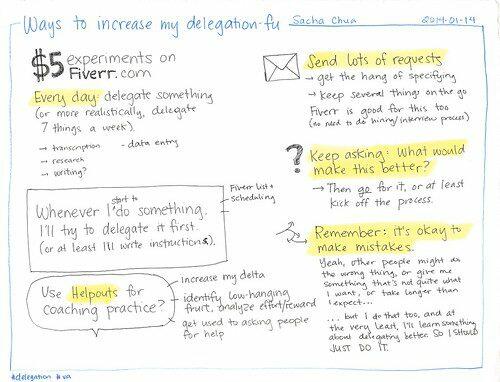 Ways to increase my delegation-fu
Sacha Chua
2014-01-14
$5 experiments on
Fiverr.com
Every day: delegate something
(or more realistically, delegate
7 things a week)
→ transcription
- data entry
→ research
→ writing?
Whenever I start to do something,
I'll try to delegate it first.
(or at least I'll write instructions).
Fiverr list +
scheduling
Use Helpouts for
coaching practice?
increase my delta
identify low-hanging
fruit, analyze effort/reward
get used to asking people
for help
Send lots of requests
→ get the hang of specifying
→ Keep several things on the go
Fiverr is good for this too
(no need to do hiring/interview process)
? Keep asking: What would
make this better?
→ Then go for it, or at least
kick off the process.
Remember: it's okay to
make mistakes.
Yeah, other people might do
the wrong thing, or give me
something that's not quite what
I want, or take longer than
I expect...
... but I do that too, and at
the very least, I'll learn something
about delegating better. So I SHOULD
JUST DO IT.
#delegation #va